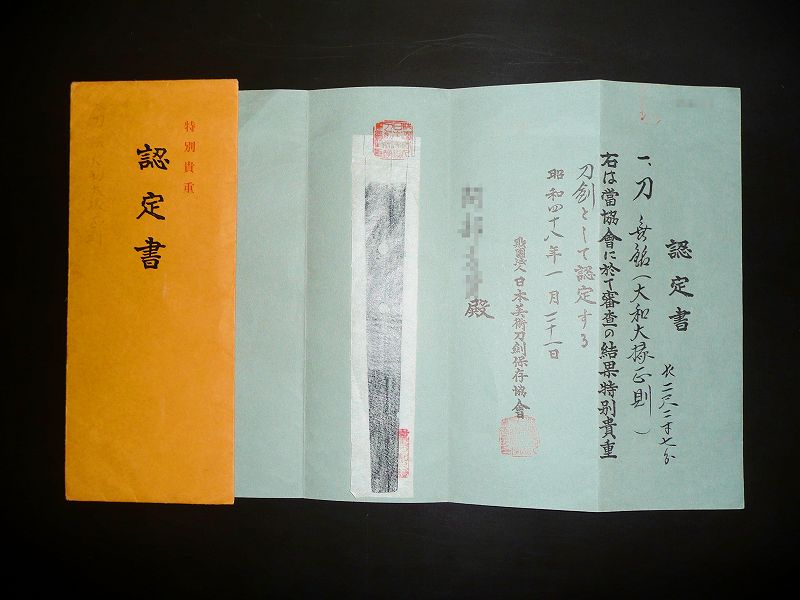 特別貴重
認定書
認定書
一、刀 無銘(大和大掾正則)
長二尺二寸七分
右は當協會に於て審査の結果特別貴重
刀剣として認定する
昭和四十八年一月三十一日
財團法人日本美術刀剣保存協會
殿